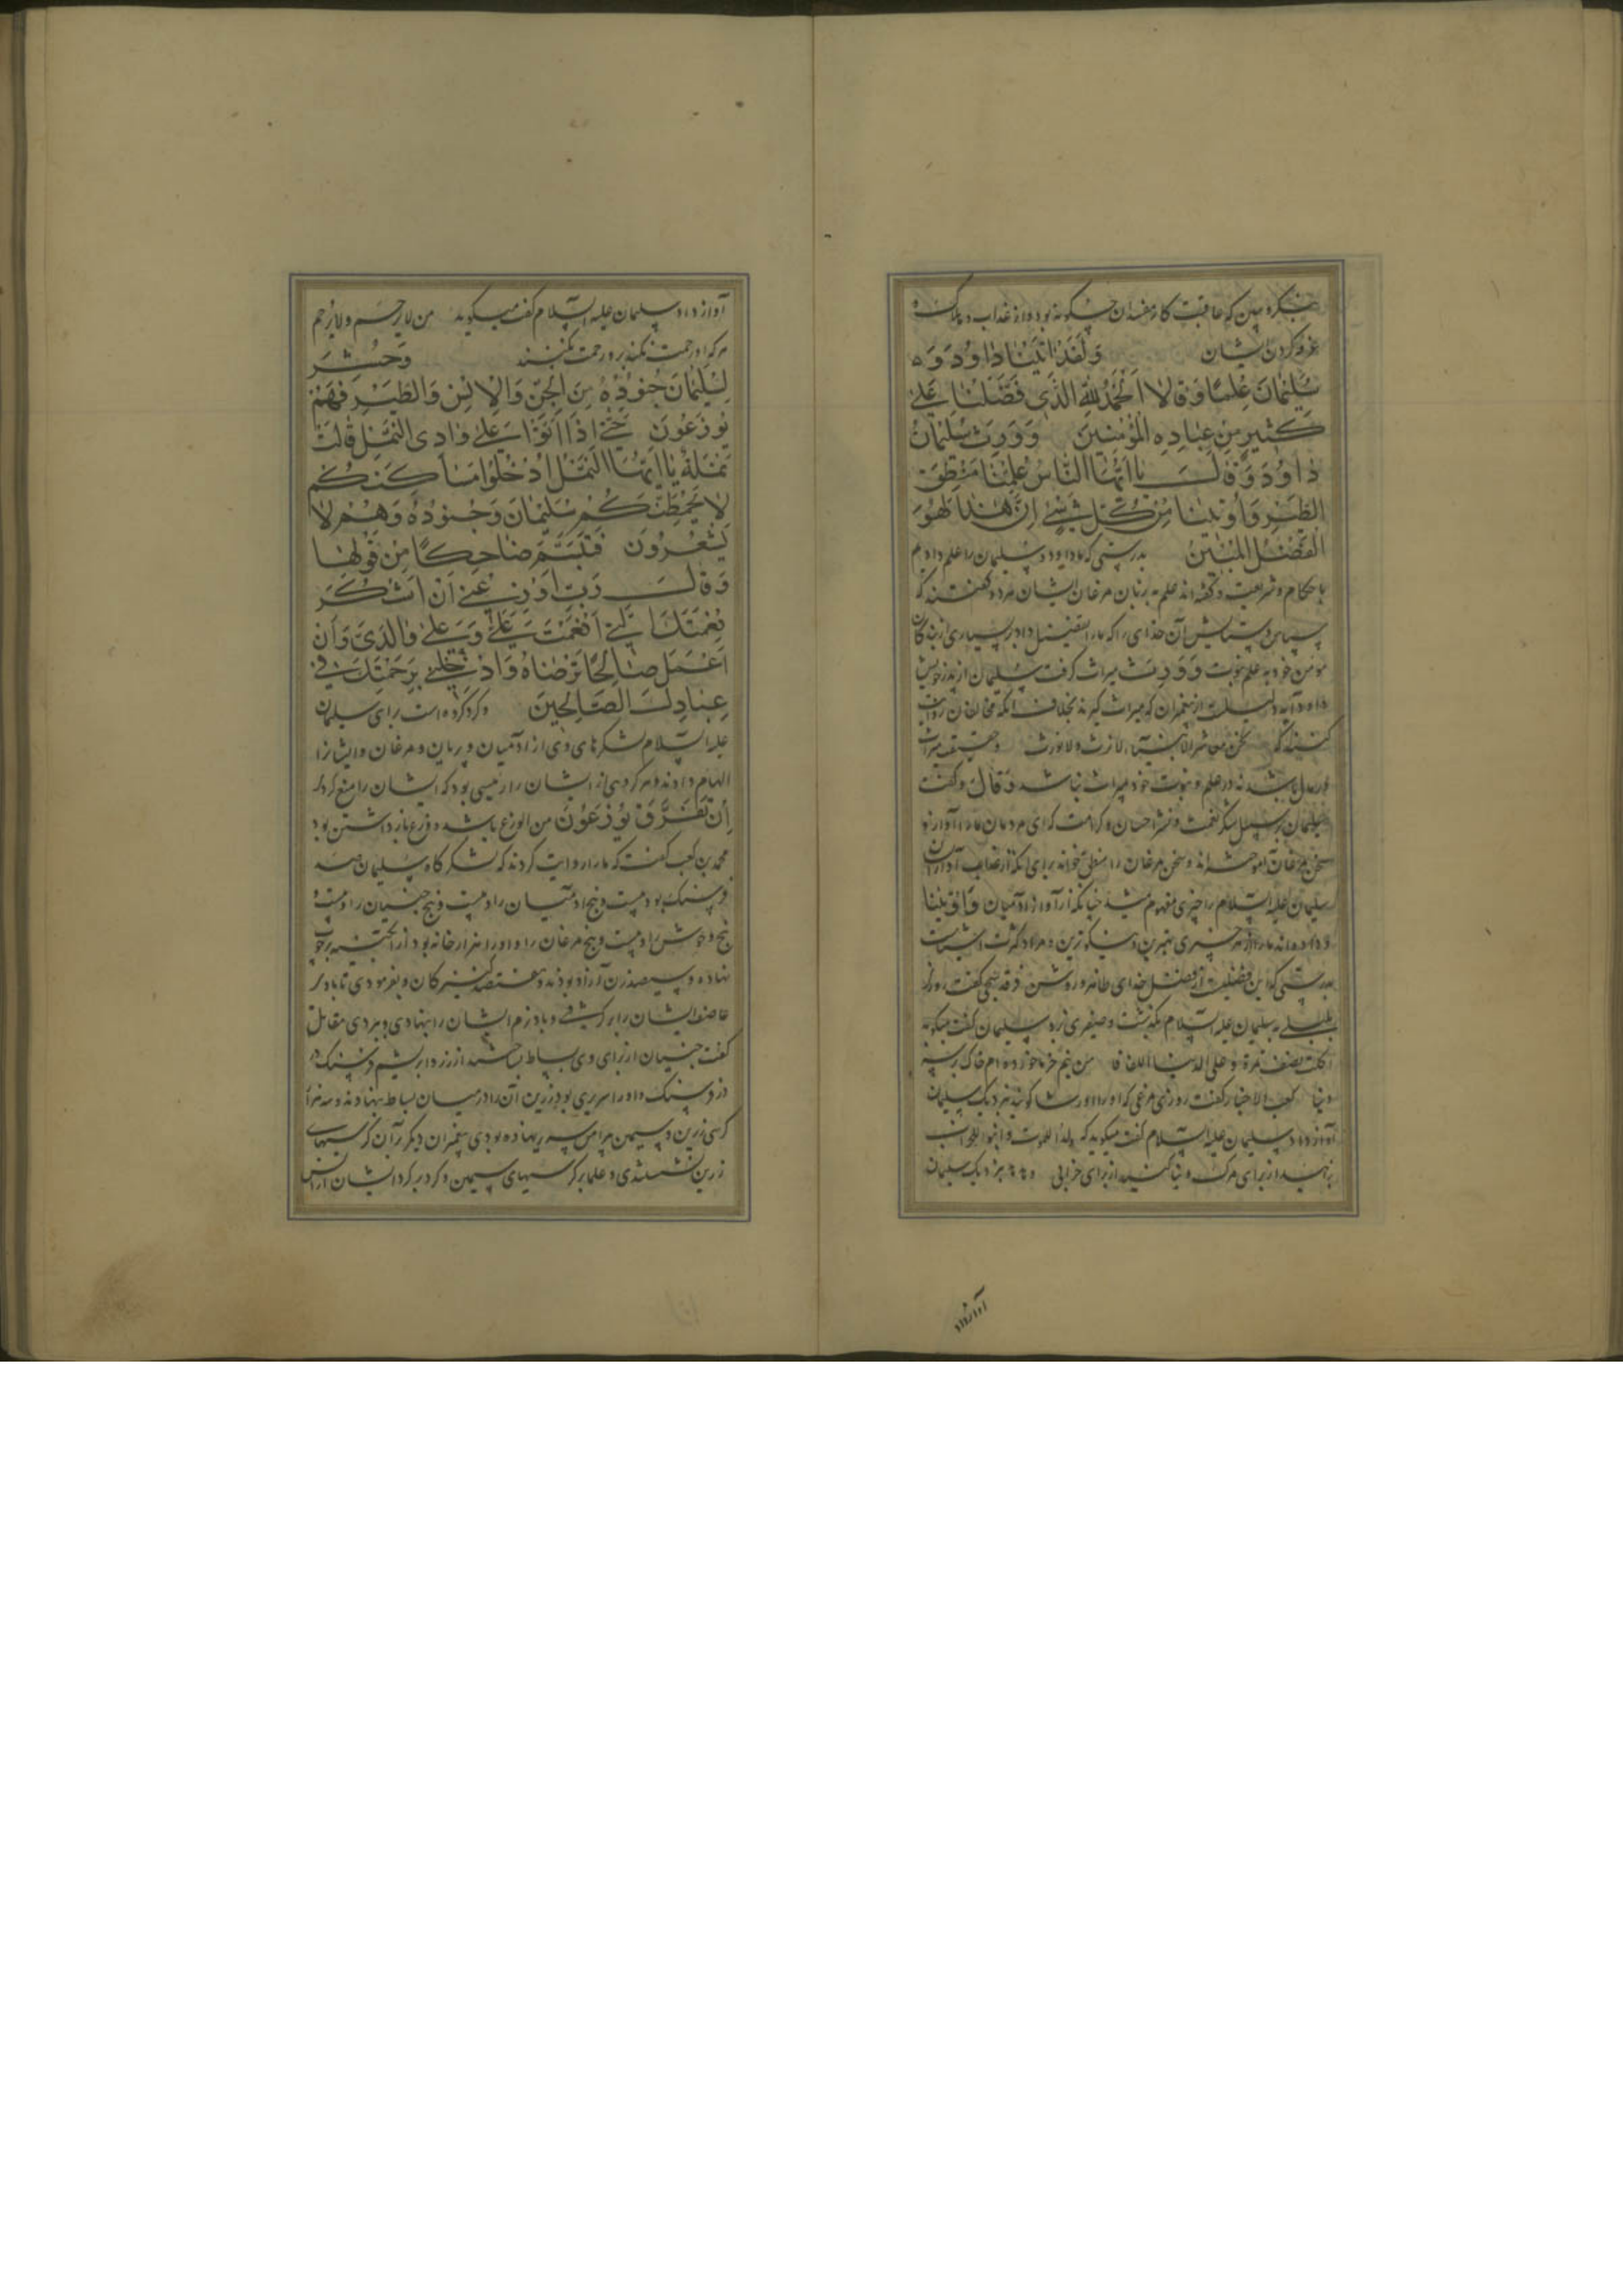 بنگر و ببین که عاقبت کار مفسدان چگونه بود و از عذاب و هلاک
غرق کردن ایشان وَلَقَدْ اٰتَيْنَا دَاوُدَ وَ
سُلَيْمٰانَ عِلْمًا وَقٰالَا الْحَمْدُ لِلّٰهِ الَّذى فَضَّلَنٰا عَلىٰ
كَثيرٍ مِنْ عِبٰادِهِ الْمُؤْمِنينَ وَوَرِثَ سُلَيْمٰانُ
دٰاوُدَ وَقٰالَ يٰا اَيُّهَا النّٰاسُ عُلِّمْنٰا مَنْطِقَ
الطَّيْرِ وَاُوتينٰا مِنْ كُلِّ شَىْءٍ اِنَّ هٰذٰا لَهُوَ
الْفَضْلُ الْمُبينُ بدرستی که ما داود و سلیمان را علم دادیم
باحکام و شریعت و گفته اند علم بزبان مرغان ایشان هر دو گفتند که
سپاس و ستایش آن خدای را که ما را تفضیل داد بر بسیاری از بندگان
مومن خود به علم نبوت وَوَرِثَ میراث گرفت سلیمان از پدر خویش
داود آیه دلیلست از پیغمبران که میراث گیرند بخلاف آنکه مخالفان روایت
کنند که نحن معاشر الانبیاء لا نرث و لا نورث و حقیقت میراث
در مال باشد نه در علم و نبوت خود میراث نباشد وَقٰالَ و گفت
سلیمان بر سبیل شکر نعمت و نشر احسان و کرامت که ای مردمان ما را آواز و
سخن مرغان آموخته اند و سخن مرغان را منطق خواند برای آنکه از
سلیمان علیه السلام را چیزی مفهوم میشد چنانکه از آواز آدمیان وَاُوتينٰا
و داده اند ما را از هر چیزی بهترین و نیکوترین و مراد کثرت اشیاست
بدرستی که این فضیلت از فضل خدای ظاهر و روشن فرقد سبخی گفت روزی
بلبلی به سلیمان علیه السلام بگذشت و صفیری زد سلیمان گفت میگوید
اکلت نصف تمرة و علی الدنیا العفا من نیم خرما خورده ام خاک بر سر
دنیا کعب الاحبار گفت روزی مرغی که او را ورشا گویند نزدیک سلیمان
آواز داد سلیمان علیه السلام گفت میگوید که لدوا للموت و ابنوا للخراب
بزایید از برای مرگ و بنا کنید از برای خرابی و نزدیک سلیمان
آواز داد
آواز داد سلیمان علیه السلام گفت میگوید من لا یرحم و لا یرحم
هر که او رحمت نکند برو رحمت نکنند وَحُشِرَ
لِسُلَيْمٰانَ جُنُودُهُ مِنَ الْجِنِّ وَالْاِنْسِ وَالطَّيْرِ فَهُمْ
يُوزَعُونَ حَتّىٰ اِذٰا اَتَوْا عَلىٰ وٰادِى النَّمْلِ قٰالَتْ
نَمْلَةٌ يٰا اَيُّهَا النَّمْلُ ادْخُلُوا مَسٰاكِنَكُمْ
لٰا يَحْطِمَنَّكُمْ سُلَيْمٰانُ وَجُنُودُهُ وَهُمْ لٰا
يَشْعُرُونَ فَتَبَسَّمَ ضٰاحِكًا مِنْ قَوْلِهٰا
وَقٰالَ رَبِّ اَوْزِعْنى اَنْ اَشْكُرَ
نِعْمَتَكَ الَّتى اَنْعَمْتَ عَلَىَّ وَعَلىٰ وٰالِدَىَّ وَاَنْ
اَعْمَلَ صٰالِحًا تَرْضٰاهُ وَاَدْخِلْنى بِرَحْمَتِكَ فى
عِبٰادِكَ الصّٰالِحينَ و گرد کرده است برای سلیمان
علیه السلام لشکرهای وی از آدمیان و پریان و مرغان و ایشانرا
الهام دادند و هر گروهی از ایشان را رئیسی بود که ایشان را منع کردی
اَنْ تَفَرَّقَ يُوزَعُونَ من الوزع باشد و وزع بازداشتن بود
محمد بن کعب گفت که ما را روایت کردند که لشکرگاه سلیمان صد
فرسنگ بود بیست و پنج آدمیان را و بیست و پنج جنیان را و بیست و
پنج وحوش را و بیست و پنج مرغان را و او را هزار خانه بود از آبگینه بر چوب
نهاده و سیصد زن آزاد بودند و هفتصد کنیزکان و بفرمودی تا باد
عاصف ایشان را برگرفتی و باد نرم ایشان را بنهادی و ببردی مقاتل
گفت جنیان از برای وی بساط بساختند از زر و ابریشم فرسنگ در
فرسنگ و او را سریری بود زرین آن را در میان بساط بنهادند و سه هزار
کرسی زرین و سیمین پیرامن سریر نهاده بودی پیغمبران دیگر بر آن کرسیهای
زرین نشستندی و علما بر کرسیهای سیمین و گرد بر گرد ایشان آدمیان